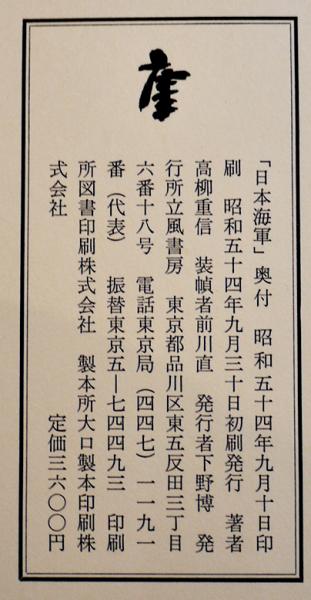 「日本海軍」奥付　昭和五十四年九月十日印
刷　昭和五十四年九月三十日初刷発行　著者
高柳重信　装幀者前川直　発行者下野博　発
行所立風書房　東京都品川区東五反田三丁目
六番十八号　電話東京局（四四七）一一九一
番（代表）　振替東京五―七四四九三　印刷
所図書印刷株式会社　製本所大口製本印刷株
式会社　定価三六〇〇円